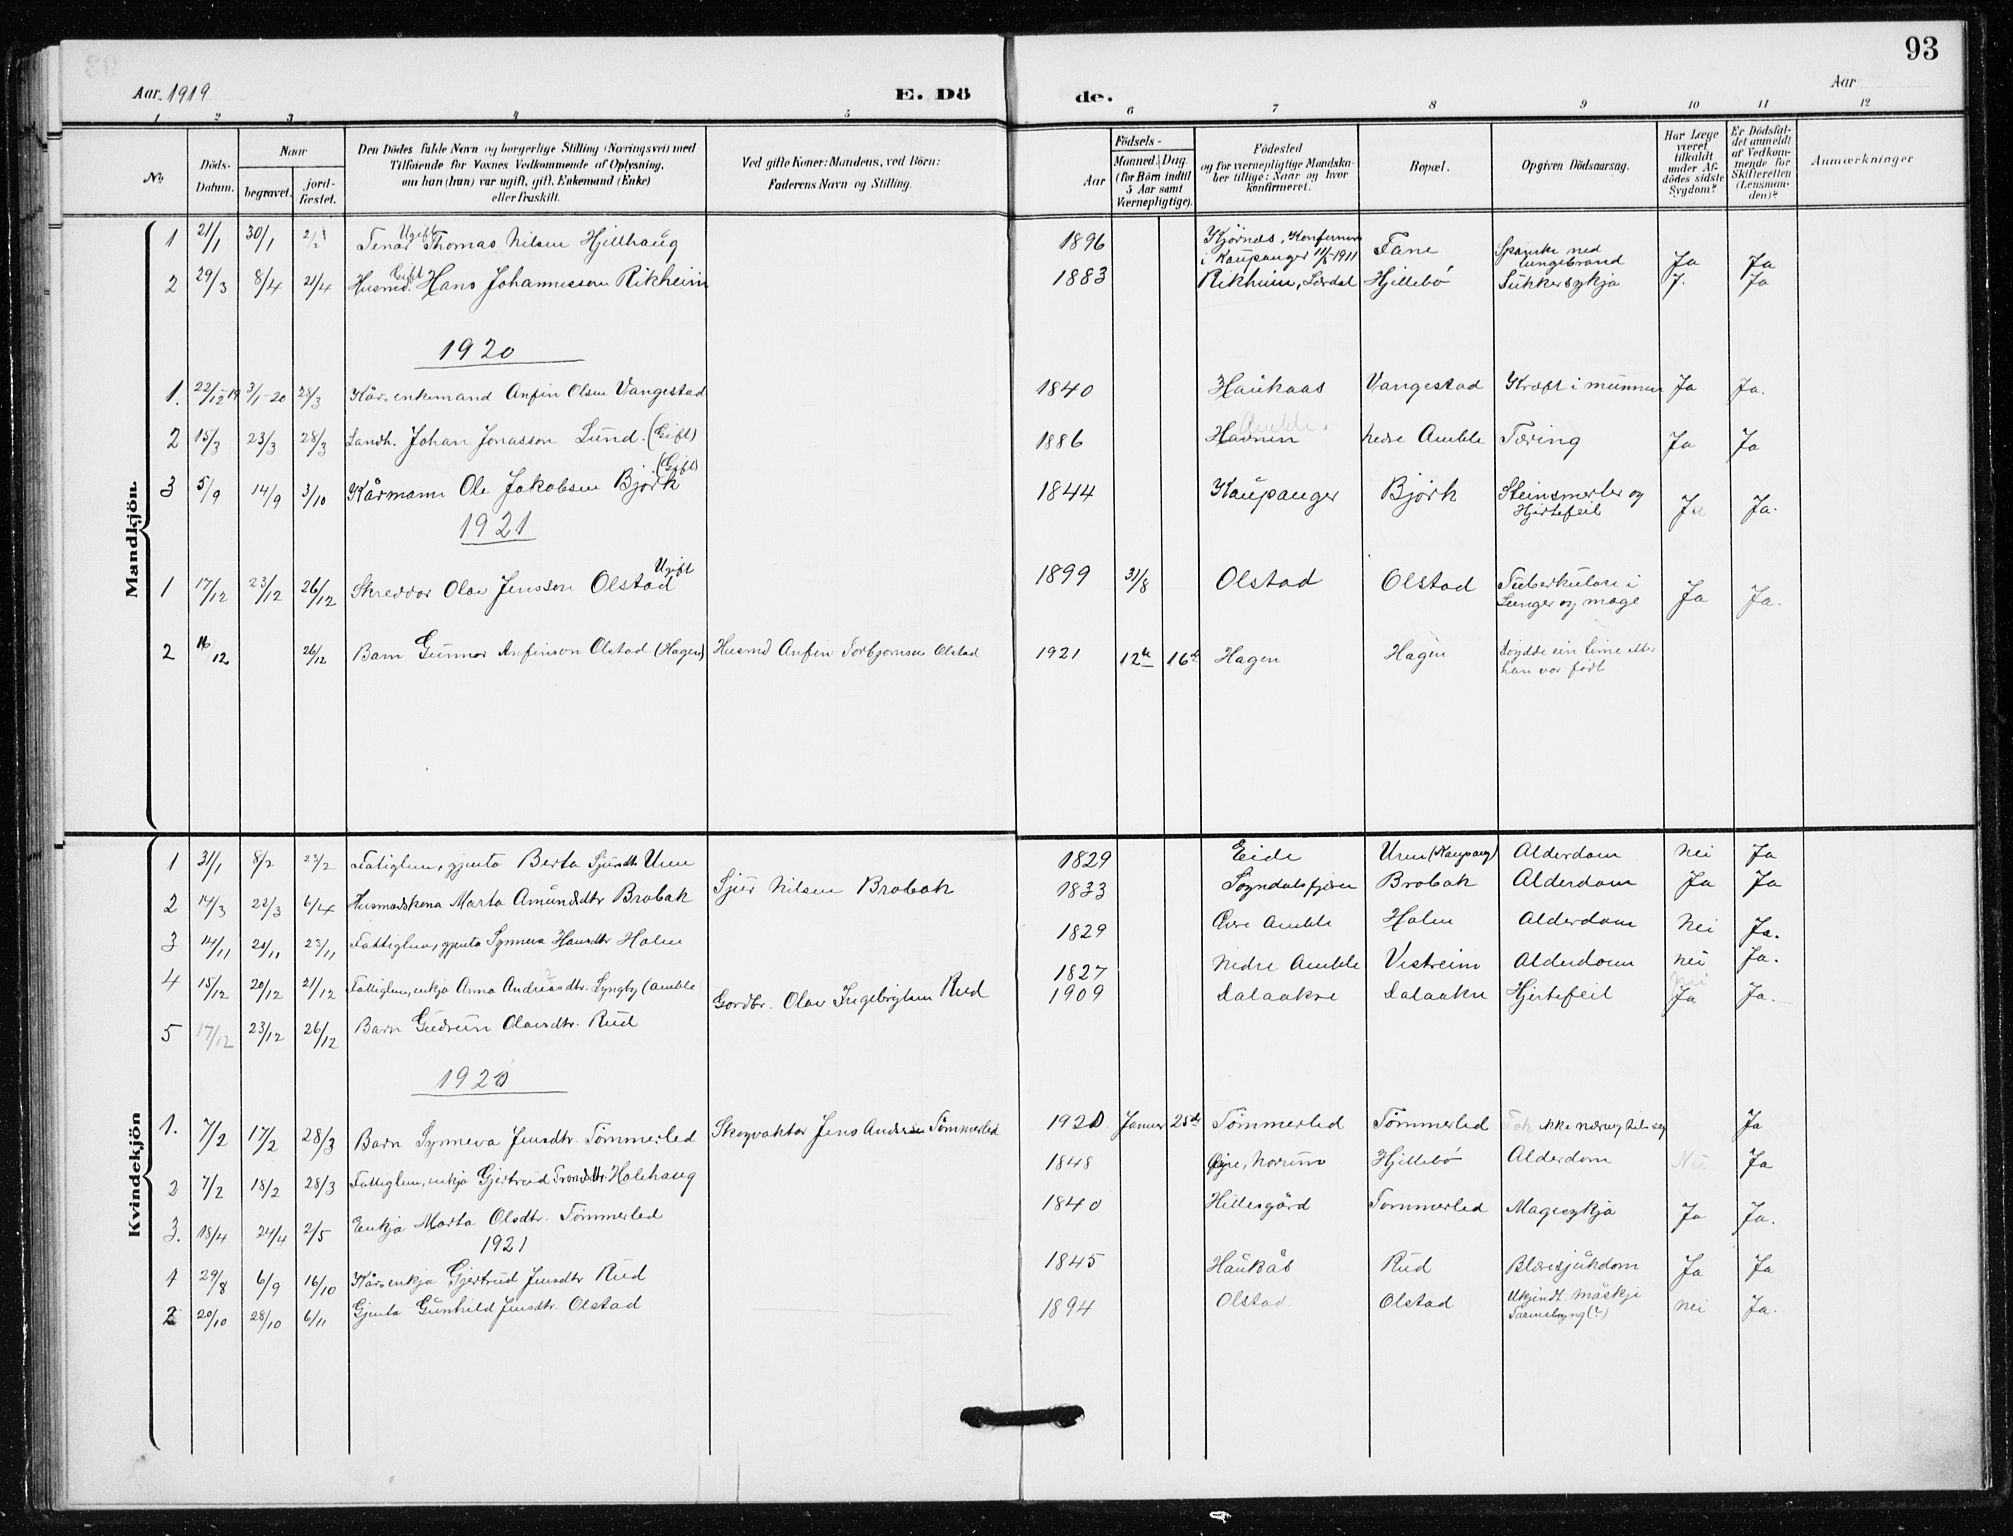 93
Aar 1919 E. Dö de. Aar
1 2 3 4 5 6 7 8 9 10 11 12
No
Döds-Datum.
Naar
begravet.
jord-fæstet.
Den Dödes fulde Navn og borgerlige Stilling (Næringsvei) med
Tilföiende for Voxnes Vedkommende af Oplysning,
om han (hun) var ugift, gift, Enkemand (Enke)
eller fraskilt.
Ved gifte Koner: Mandens, ved Börn:
Faderens Navn og Stilling.
Födsels-
Aar
Maaned. Dag.
(for Börn indtil
5 Aar samt
Værnepligtige).
Födested
og for værnepligtige Mandska-
ber tillige: Naar og hvor
konfirmeret.
Bopæl.
Opgiven Dödsaarsag.
Har Læge
været
tilkaldt
under Af-
dödes sidste
Sygdom?
Er Dödsfal-
det anmeldt
af Vedkom-
mende for
Skifteretten
(Lensman-
den)?
Anmærkninger
Mandkjön.
1 21/1 30/1 Ugift Thomas Nilsen Hjellhaug 1896 Kjørnes, i Kaupanger 1911 Fane Spanske med lungebrand Ja Ja
2 29/3 8/4 21/4 Husmd. Gift Hans Johannesson Rikheim 1883 Rikheim, Lærdal Hjellebø Sukkersykja J. Ja
1920
1. 22/12-19 3/1-20 28/3 Kår-enkemand Anfin Olsen Vangestad 1840 Haukaas Vangestad Kræft i munnen Ja Ja.
2 15/3 23/3 28/3 Landh. Johan Jonasson Lund. (Gift) 1886 Amble. Havnen nedre Amble Tæring Ja Ja
3 5/9 14/9 3/10 Kårmann Ole Jakobsen Bjørk (Gift) 1844 Kaupanger Bjørk Steinsmerter og Hjertefeil Ja Ja.
1921
1 17/12 23/12 26/12 Skreddar Olav Jensson Olstad Ugift 1899 31/8 Olstad Olstad Tuberkulose i Lunger og mage Ja Ja.
2 16/12 26/12 Barn Gunnar Anfinson Olstad (Hagen) Husmd Anfin Torbjornsen Olstad 1921 12te 16de Hagen Hagen Døydde ein time etter han var født
Kvindekjön
1 31/1 8/2 23/2 Fatiglem, gjenta Berta Sjursdtr Uren 1829 Eide Uren (Kaupang) Alderdom Nei Ja
2 14/3 22/3 6/4 Husmadskona Marta Amundsdtr Brobak Sjur Nilsen Brobak 1833 Sogndalsfjøra Brobak Alderdom Ja Ja
3 14/11 21/11 23/11 Fattiglem, gjenta Synneva Hansdtr Holen 1829 Øvre Amble Holen Alderdom Nei Ja.
4 15/12 20/12 21/12 Fattiglem, enkja Anna Andreasdtr. Lyngby (Amble) 1827 Nedre Amble Vestreim Alderdom nei Ja.
5 17/12 23/12 26/12 Barn Gudrun Olavsdtr. Rud Gardbr. Olav Ingebrigtsen Rud 1909 Dalaakre Dalaakre Hjertefeil Ja Ja.
1920
1. 7/2 17/2 28/3 Barn Synneva Jensdtr. Tömmerled Skogvaktar Jens Andersen Tömmerled 1920 Januar 25de Tömmerled Tömmerled Tok ikke næring til seg Ja
2 7/2 18/2 28/3 Fattiglem, enkja Gjertrud Trondsdtr. Holehaug 1848 Øyre, Norum Hjellebø Alderdom Nei Ja
3. 18/4 24/4 2/5 Enkja Marta Olsdtr. Tömmerled 1840 Hillesgård Tommerled Magesykja Ja Ja.
1921
1 29/8 6/9 16/10 Kår-enkja Gjertrud Jensdtr Rud 1845 Haukås Rud Blæresjukdom Ja Ja
2 20/10 28/10 6/11 Gjenta Gunhild Jensdtr. Olstad 1894 Olstad Olstad Ukjindt. måskje nei Ja.